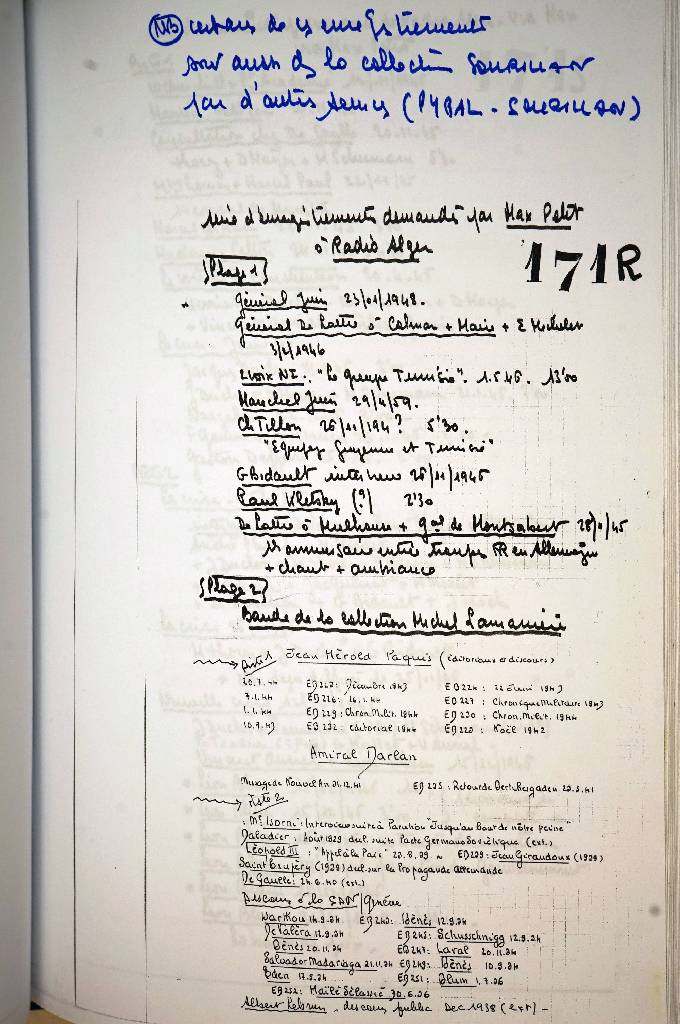 NB certains de ces enregistrements
sont aussi ds la collection SOURILLAN
par d'autres (PYRAL - SOURILLAN)
série d'enregistrements demandés par Max Petit
à Radio Alger
171R
Plage 1
Général Juin 23/01/1948.
Général De Lattre à Colmar + Maire + E Michelet
3/2/1946
"Le groupe Tunisie". 1.5.45. 13'00
Maréchal Juin 29/4/59.
Ch Tillon 26/11/194? 5'30.
"Equipes Guyenne et Tunisie"
G Bidault interview 26/11/1945
Paul Kletsky (?) 2'30
De Lattre à Mulhouse + gal de Montsabert 28/11/45
anniversaire entrée troupes FR en Allemagne
+ chant + ambiance
Plage 2
Bande de la collection Michel Lamamière
Piste 1 Jean Hérold Paquis (éditoriaux et discours)
20.7.44 ED 217: Décembre 1943 ED 224: 22 1943
7.1.44 ED 226: 16.1.44 ED 227: Chronique Militaire 1943
1.1.44 ED 229: Chron. Milit. 1944 ED 230: Chron. Milit. 1944
10.7.43 ED 232: éditorial 1944 ED 220: Noël 1942
Amiral Darlan
Message de Nouvel An 31.12.41 ED 235: Retour de Berchtesgaden 23.5.41
Piste 2
: Me Isorni: Interview suite à Parution "Jusqu'au Bout de notre peine"
Daladier: Août 1939 décl. suite Pacte Germano Soviétique (ext.)
Léopold III: "Appel à la Paix" 23.8.39 ED 239: Jean Giraudoux (1939)
Saint Exupéry (1939) décl. sur la Propagande Allemande
De Gaulle: 24.6.40 (ext.)
Discours à la SDN/Genève
ED 240: Bénès 12.9.34
De Valéra 12.9.34 ED 245: Schusschnigg 12.9.34
Bénès 20.11.34 ED 247: Laval 20.11.34
Salvador Madariaga 21.11.34 ED 249: Bénès 10.9.34
Eden 17.9.34 ED 251: Blum 1.7.36
ED 252: Hailé Sélassié 30.6.36
Albert Lebrun, discours public Dec 1938 (ext) -